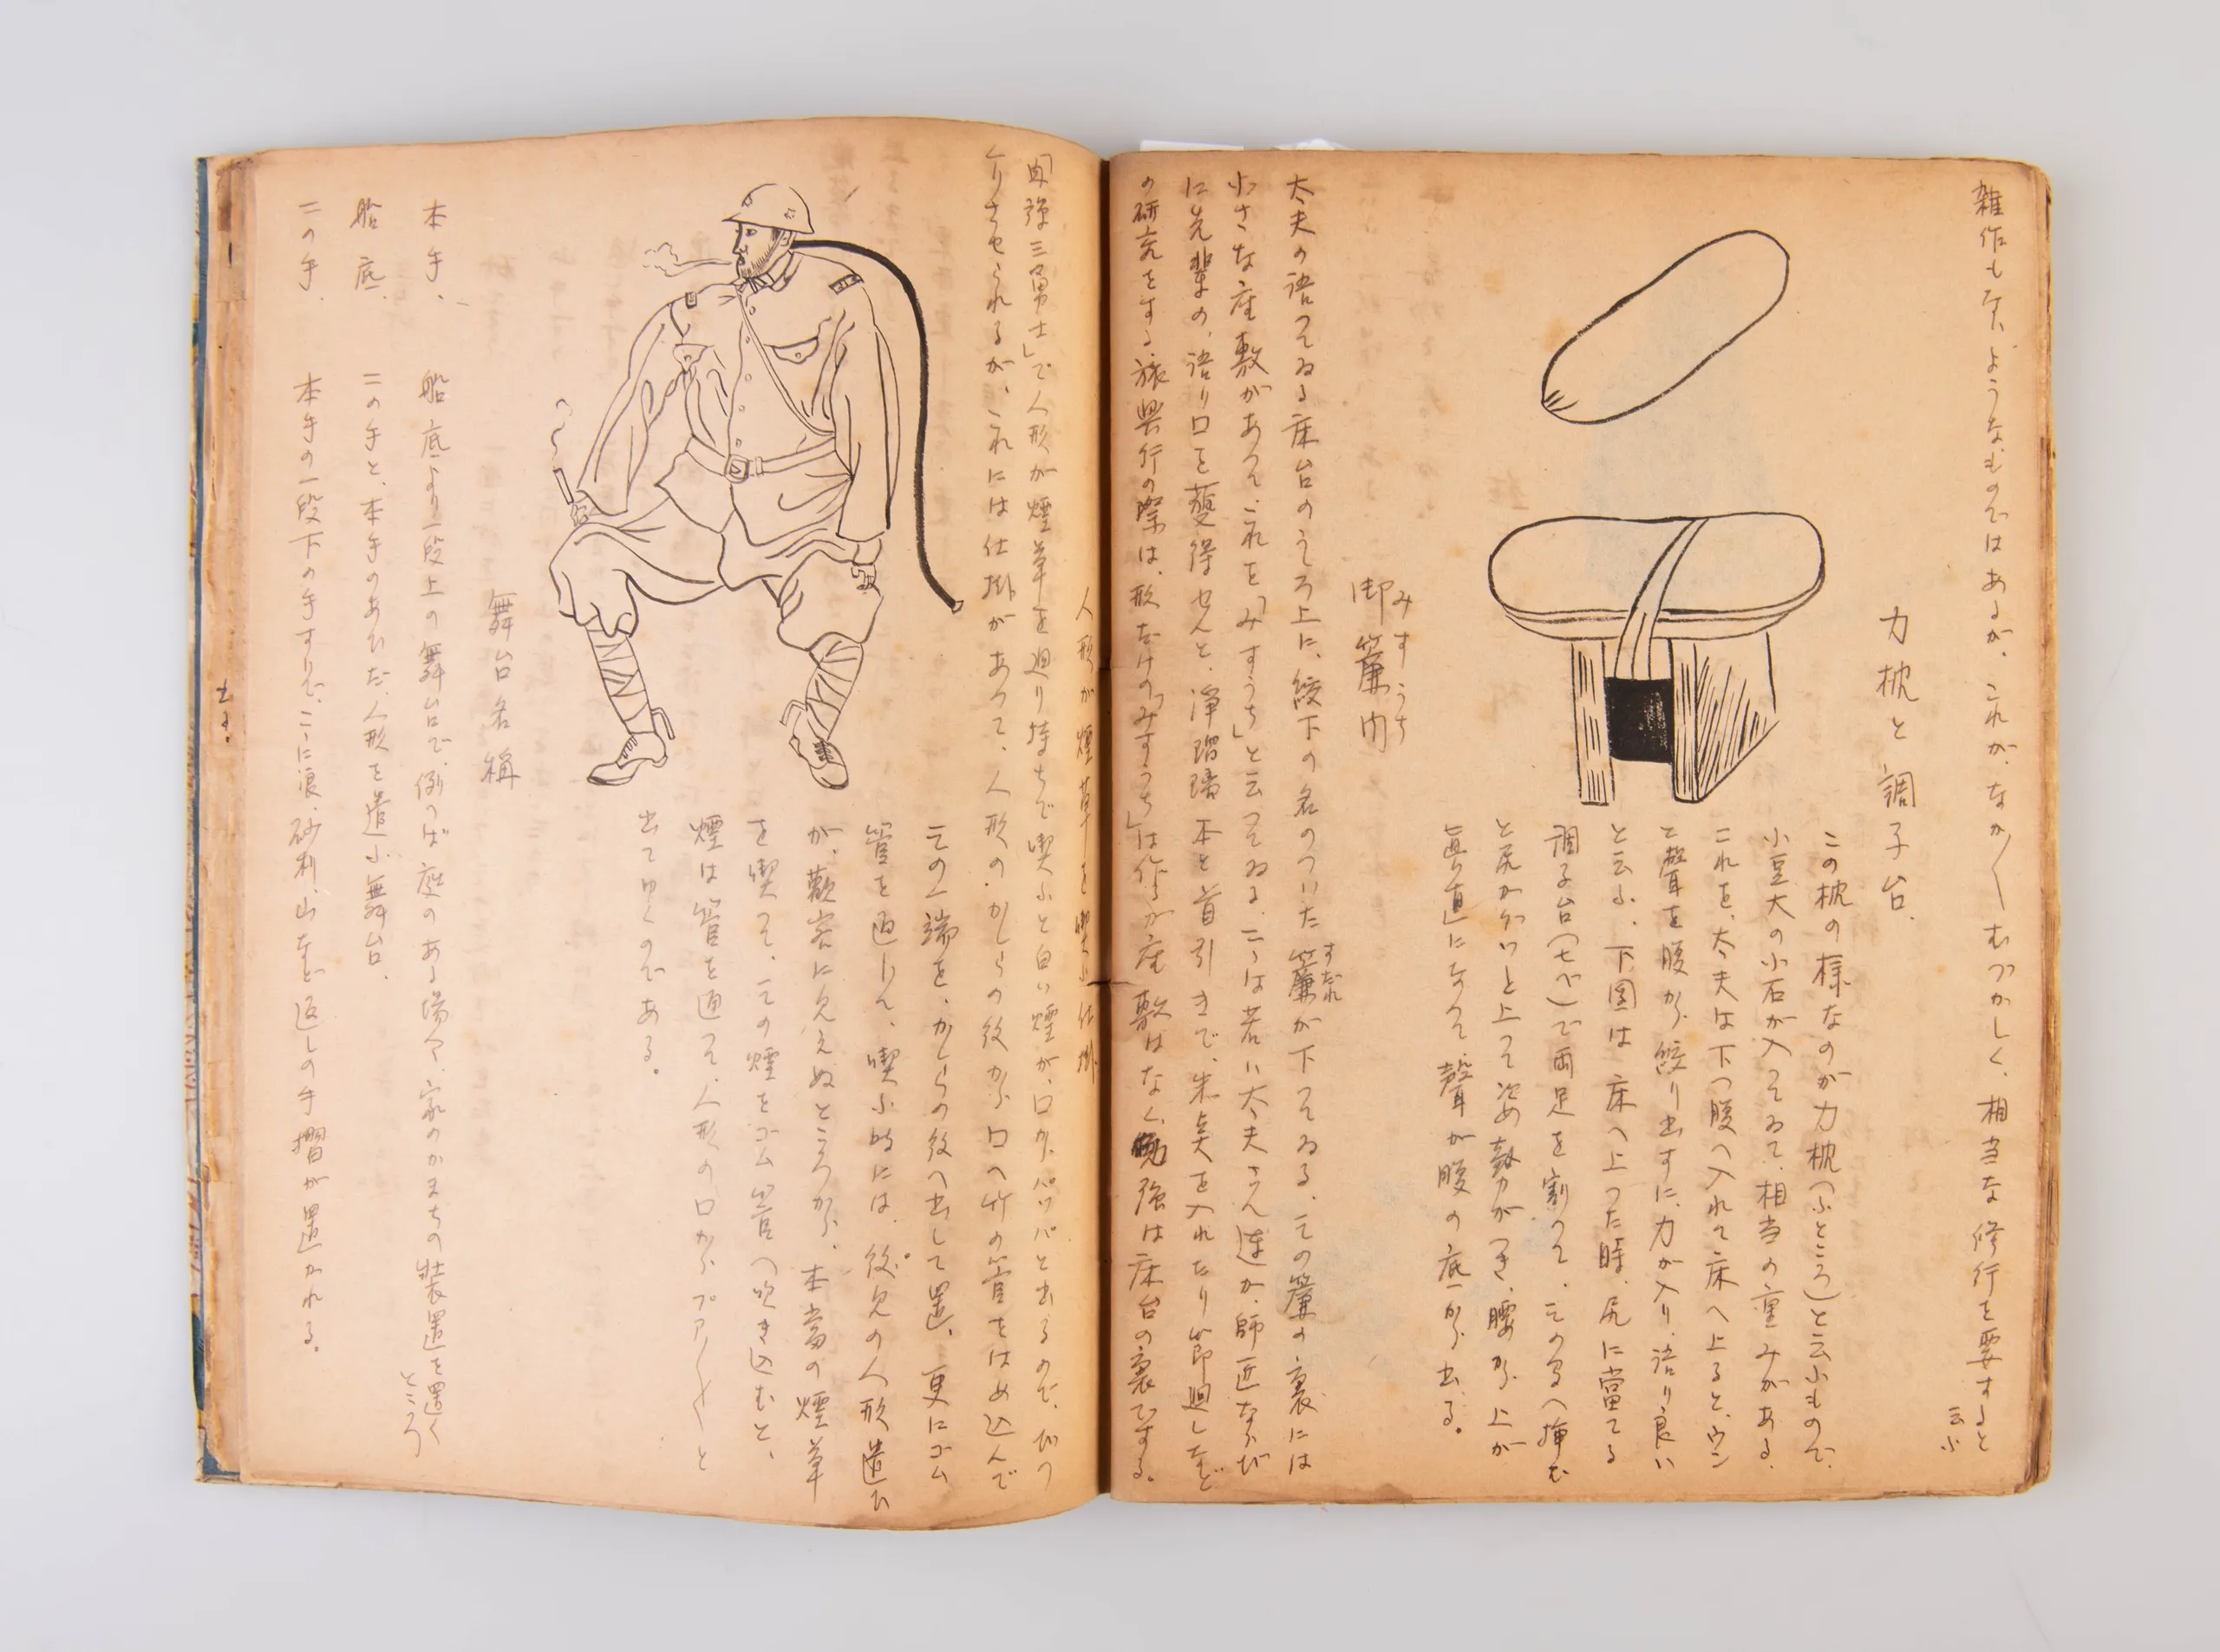 雑作もないようなものではあるが、これが、なか〱むつかしく、相当な修行を要すると
云ふ
力枕と調子台。
この枕の様なのが力枕（ふところ）と云ふもので、
小豆大の小石が入つてゐて、相当の重みがある。
これを、太夫は下つ腹へ入れて床へ上ると、ウン
と聲を腹から絞り出すに、力が入り、語り良い
と云ふ、下図は床へ上つた時、尻に當てる
調子台（七べ）で両足を割つて、その間へ挿む
と尻がグイと上つて姿勢がつき、腰から上が
真直になつて聲が腹の底から出る。
御簾内
みすうち
太夫の語つてゐる床台のうしろ上に、紋下の名のついた簾が下つてゐる、その簾の裏には
すだれ
小さな座敷があつて、これを「みすうち」と云つてゐる、こゝは若い太夫さん連が、師匠ならび
に先輩の、語り口を獲得せんと、浄瑠璃本と首引きで、朱点を入れたり節廻しなど
の研究をする、旅興行の際は、形だけの「みすうち」は作るが座敷はなく、勉強は床台の裏でする。
人形が煙草を喫ふ仕掛
「肉弾三勇士」で人形が煙草を廻り持ちで喫ふと白い煙が、口からパツパと出るので、びつ
くりさせられるが、これには仕掛があつて、人形のかしらの後から口へ竹の管をはめ込んで
その一端を、かしらの後へ出して置、更にゴム
管を通して、喫ふ時には、後見の人形遣ひ
が、観客に見えぬところから、本當の煙草
を喫つて、その煙をゴム管へ吹き込むと、
煙は管を通つて、人形の口から、プアー〱と
出てゆくのである。
舞台名稱
本手、 船底より一段上の舞台で、例へば庭のある場合、家のかまちの装置を置く
ところ
船底、 二の手と、本手のあひだ、人形を遣ふ舞台、
二の手、 本手の一段下の手すりで、こゝに浪、砂利、山など返しの手摺が置かれる。